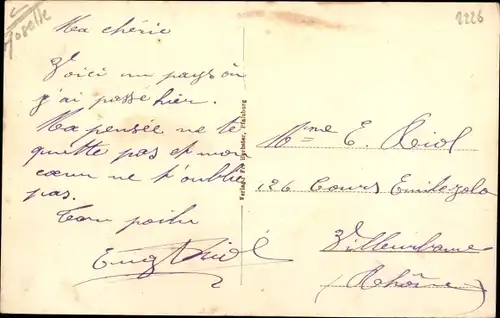 Moselle
2226
Ma chérie
Voici un pays où
j'ai passé hier.
Ma pensée ne te
quitte pas et mon
cœur ne t'oublie
pas.
Ton poilu
Verlag Pfalzburg
Mme E. Riol
126 Cours Emile Zola
Villeurbanne
(Rhône)